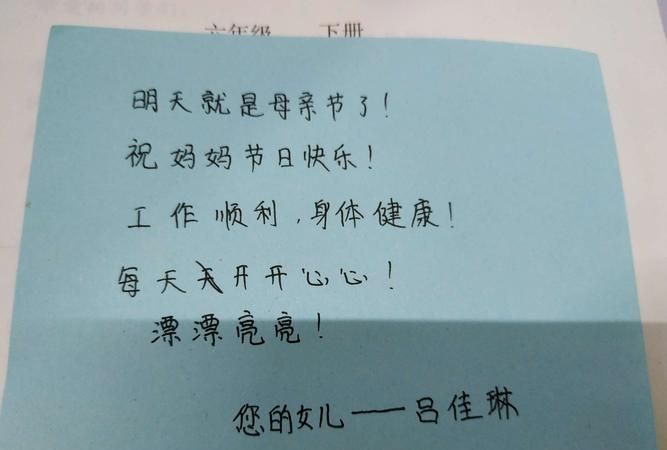 六年级 下册
明天就是母亲节了！
祝妈妈节日快乐！
工作顺利，身体健康！
每天开开心心！
漂漂亮亮！
您的女儿——吕佳琳